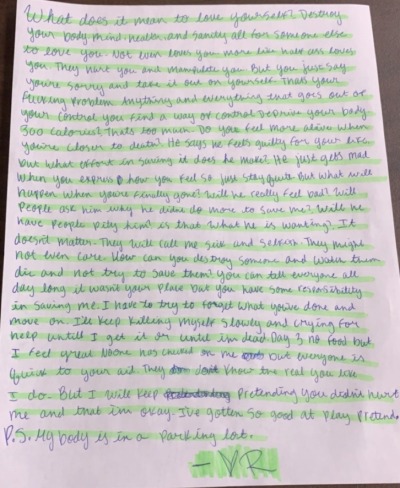 What does it mean to love yourself? Destroy
your body mind health, and sanity all for someone else
to love you. Not even loves you more like half ass loves
you. They hurt you and manipulate you But you just say
you're sorry and take it out on yourself. Thats your
fucking problem. Anything and everything that goes out of
your control you find a way of control. Deprive your body
300 calories? Thats too much. Do you feel more alive when
you're closer to death? He says he feels guilty for your life,
but what effort in saving it does he make? He just gets mad
when you express how you feel so just stay quite. But what will
happen when you're finally gone? Will he really feel bad? Will
people ask him why he didnt do more to save me? Will he
have people pity him? is that what he is wanting? It
doesn't matter. They will call me sick and selfish. They might
not even care. How can you destroy someone and watch them
die and not try to save them? you can tell everyone all
day long it wasnt your place but you have some responsibility
in saving me. I have to try to forget what you've done and
move on. I'll keep killing myself slowly and crying for
help untill I get it or until im dead. Day 3 no food but
I feel great. Noone has checked on me but everyone is
quick to your aid. They dont know the real you like
I do. But I will keep pretending you didn't hurt
me and that im okay. I've gotten so good at play pretend.
P.S. My body is in a parking lot.